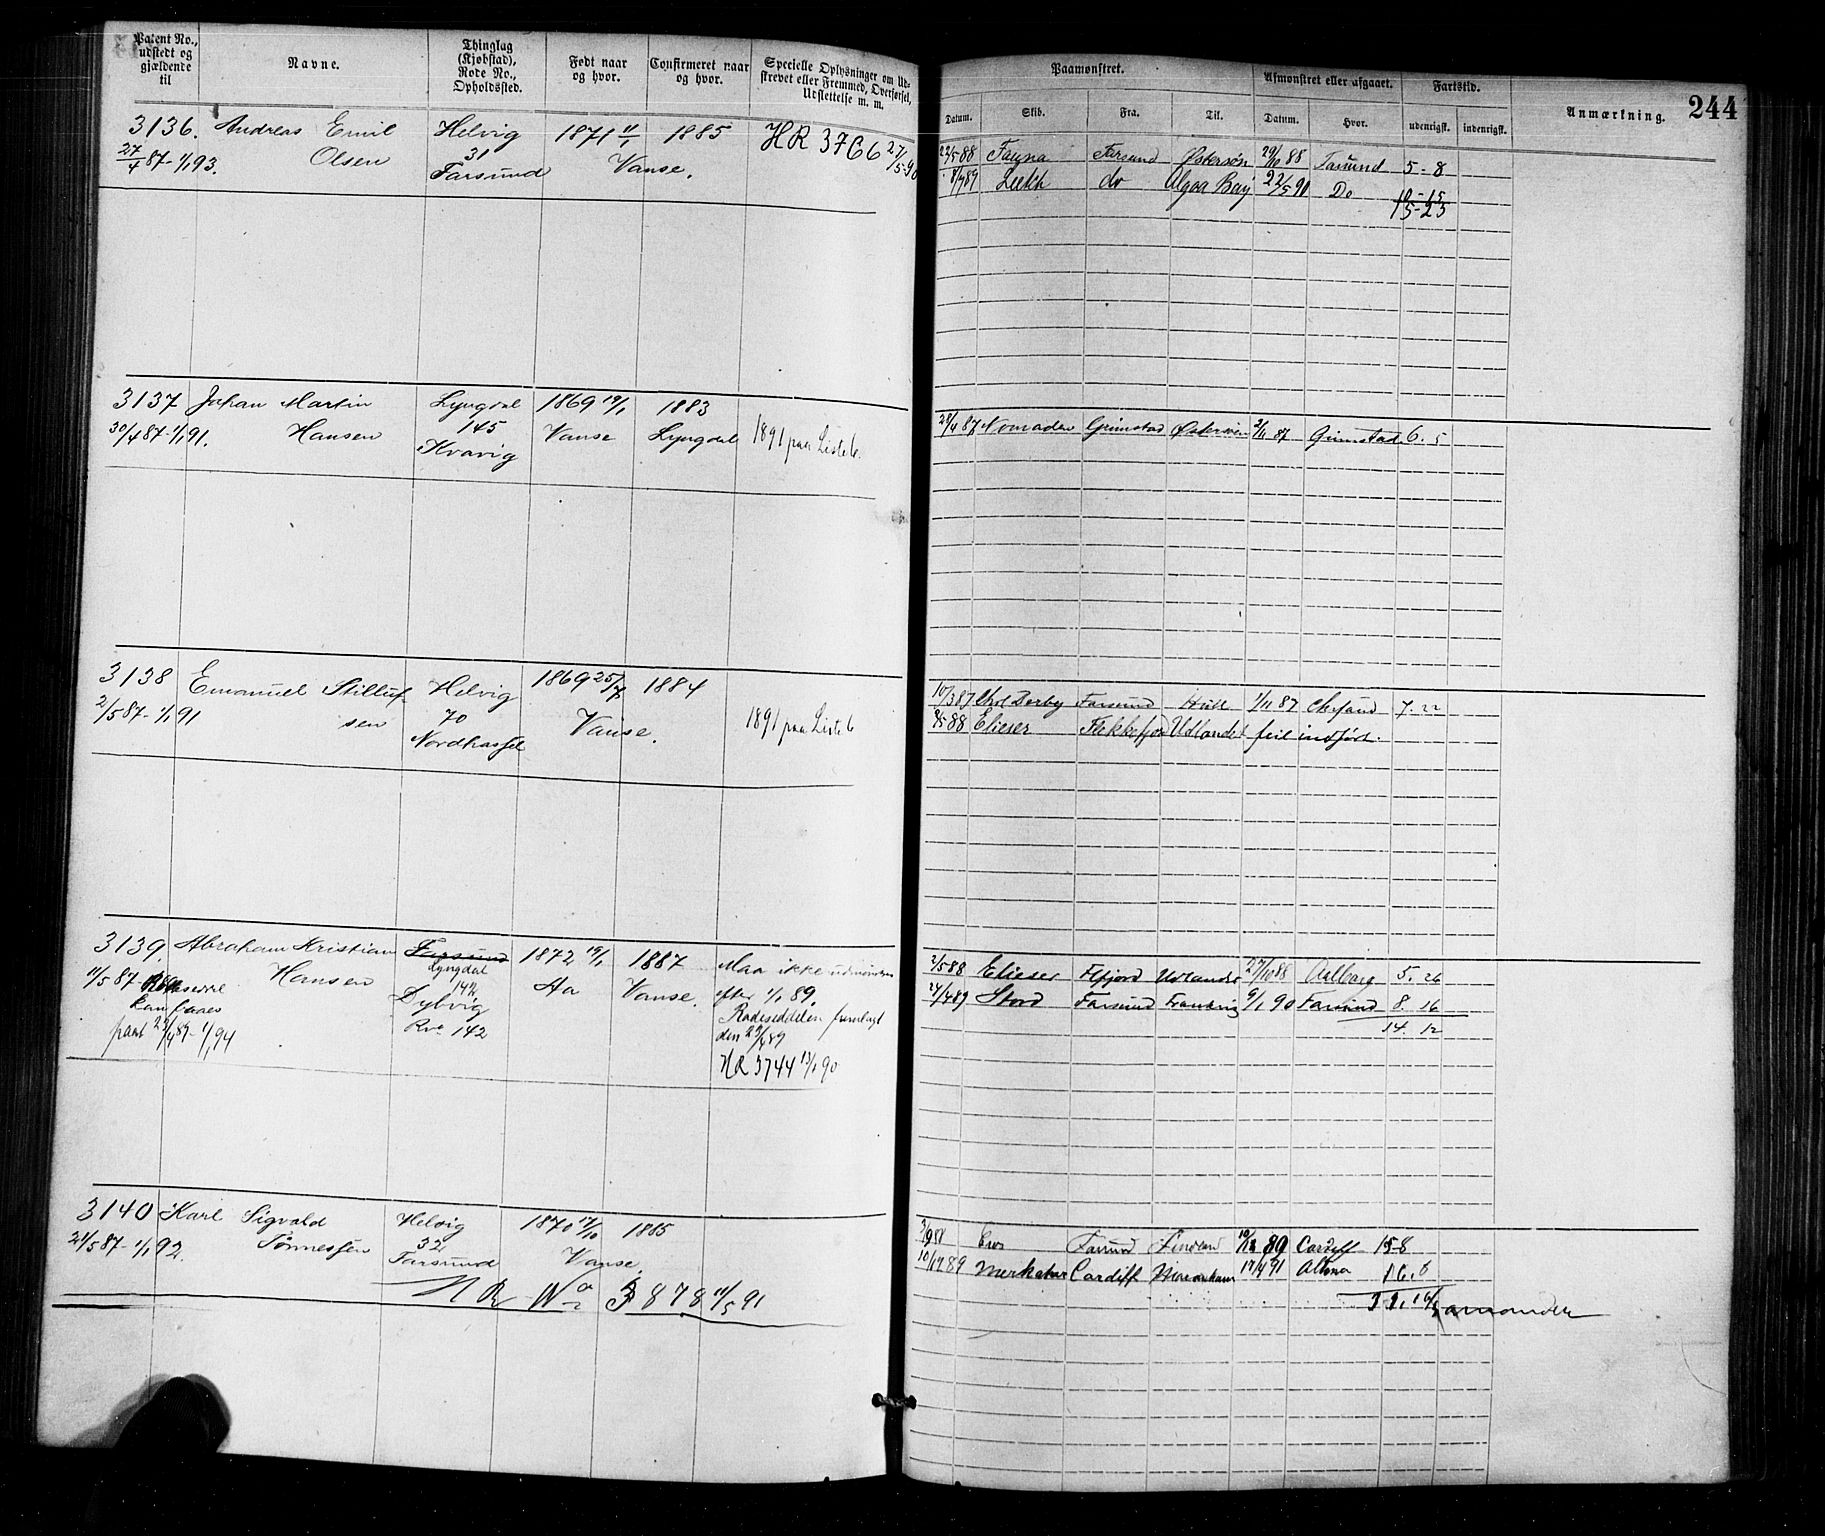 Patent No., udstedt og gjældende til
Navne.
Thinglag (Kjøbstad), Rode No., Opholdssted.
Født naar og hvor.
Confirmeret naar og hvor.
Specielle Oplysninger om Udskrevet eller Fremmed, Overførsel, Udslettelse m. m.
Paamønstret.
Datum.
Skib.
Fra.
Til.
Afmønstret eller afgaaet.
Datum.
Hvor.
Fartstid.
udenrigsk.
indenrigsk.
Anmærkning.
244
3136. Andreas Emil Helvig 1871 11/1 1885 HR 3766 27/5-90
27/4 87-1/1 93. Olsen 31 Vanse.
Farsund
22/5 88 Fauna Farsund Østersøn 29/10 88 Farsund 5-8
8/7 89 do Algoa Bay 22/5 90 Do 10-15
15-23
3137 Johan Martin Lyngdal 1869 19/1 1883
30/4 87-1/1 91. Hansen 145 Vanse Lyngdal 1891 paa Liste b.
Kvavig
28/4 87 Nomaden Grimstad Østersøen 2/11 87 Grimstad 6. 5
3138 Emanuel Stilluf Helvig 1869 25/7 1884
2/5 87-1/1 91 sen 70 Vanse. 1891 paa Liste b
Nordhassel
10/3 87 Chrl Derby Farsund Hull 1/11 87 Chrsand 7. 22
2/5 88 Elieser Flekkefjord Udlandet feil indført.
3139. Abraham Kristian Farsund 1872 19/1 1887 Maa ikke udmønstres
11/5 87- Hansen Lyngdal Aa Vanse. efter 1/1 89.
kan faaes 142 Rodeseddelen fremlagt
pant 23/4 89-1/1 94 Dybvig den 23/4 89
Rode 142 HR 3744 13/1 90
2/5 88 Elieser Flfjord Udlandet 27/10 88 Aalborg 5. 26
24/4 89 Stord Farsund Frankrig 9/1 90 Farsund 8. 16
14. 12
3140 Karl Sigvald Helvig 1870 17/10 1885
21/5 87-1/1 92. Tønnessen 32 Vanse.
Farsund
HR No 3878 11/5 91
3/9 88 Eros Farsund Findland 89 Cardiff 15-8
89 Merkatur Cardiff 17/4 91 Altona 16. 6